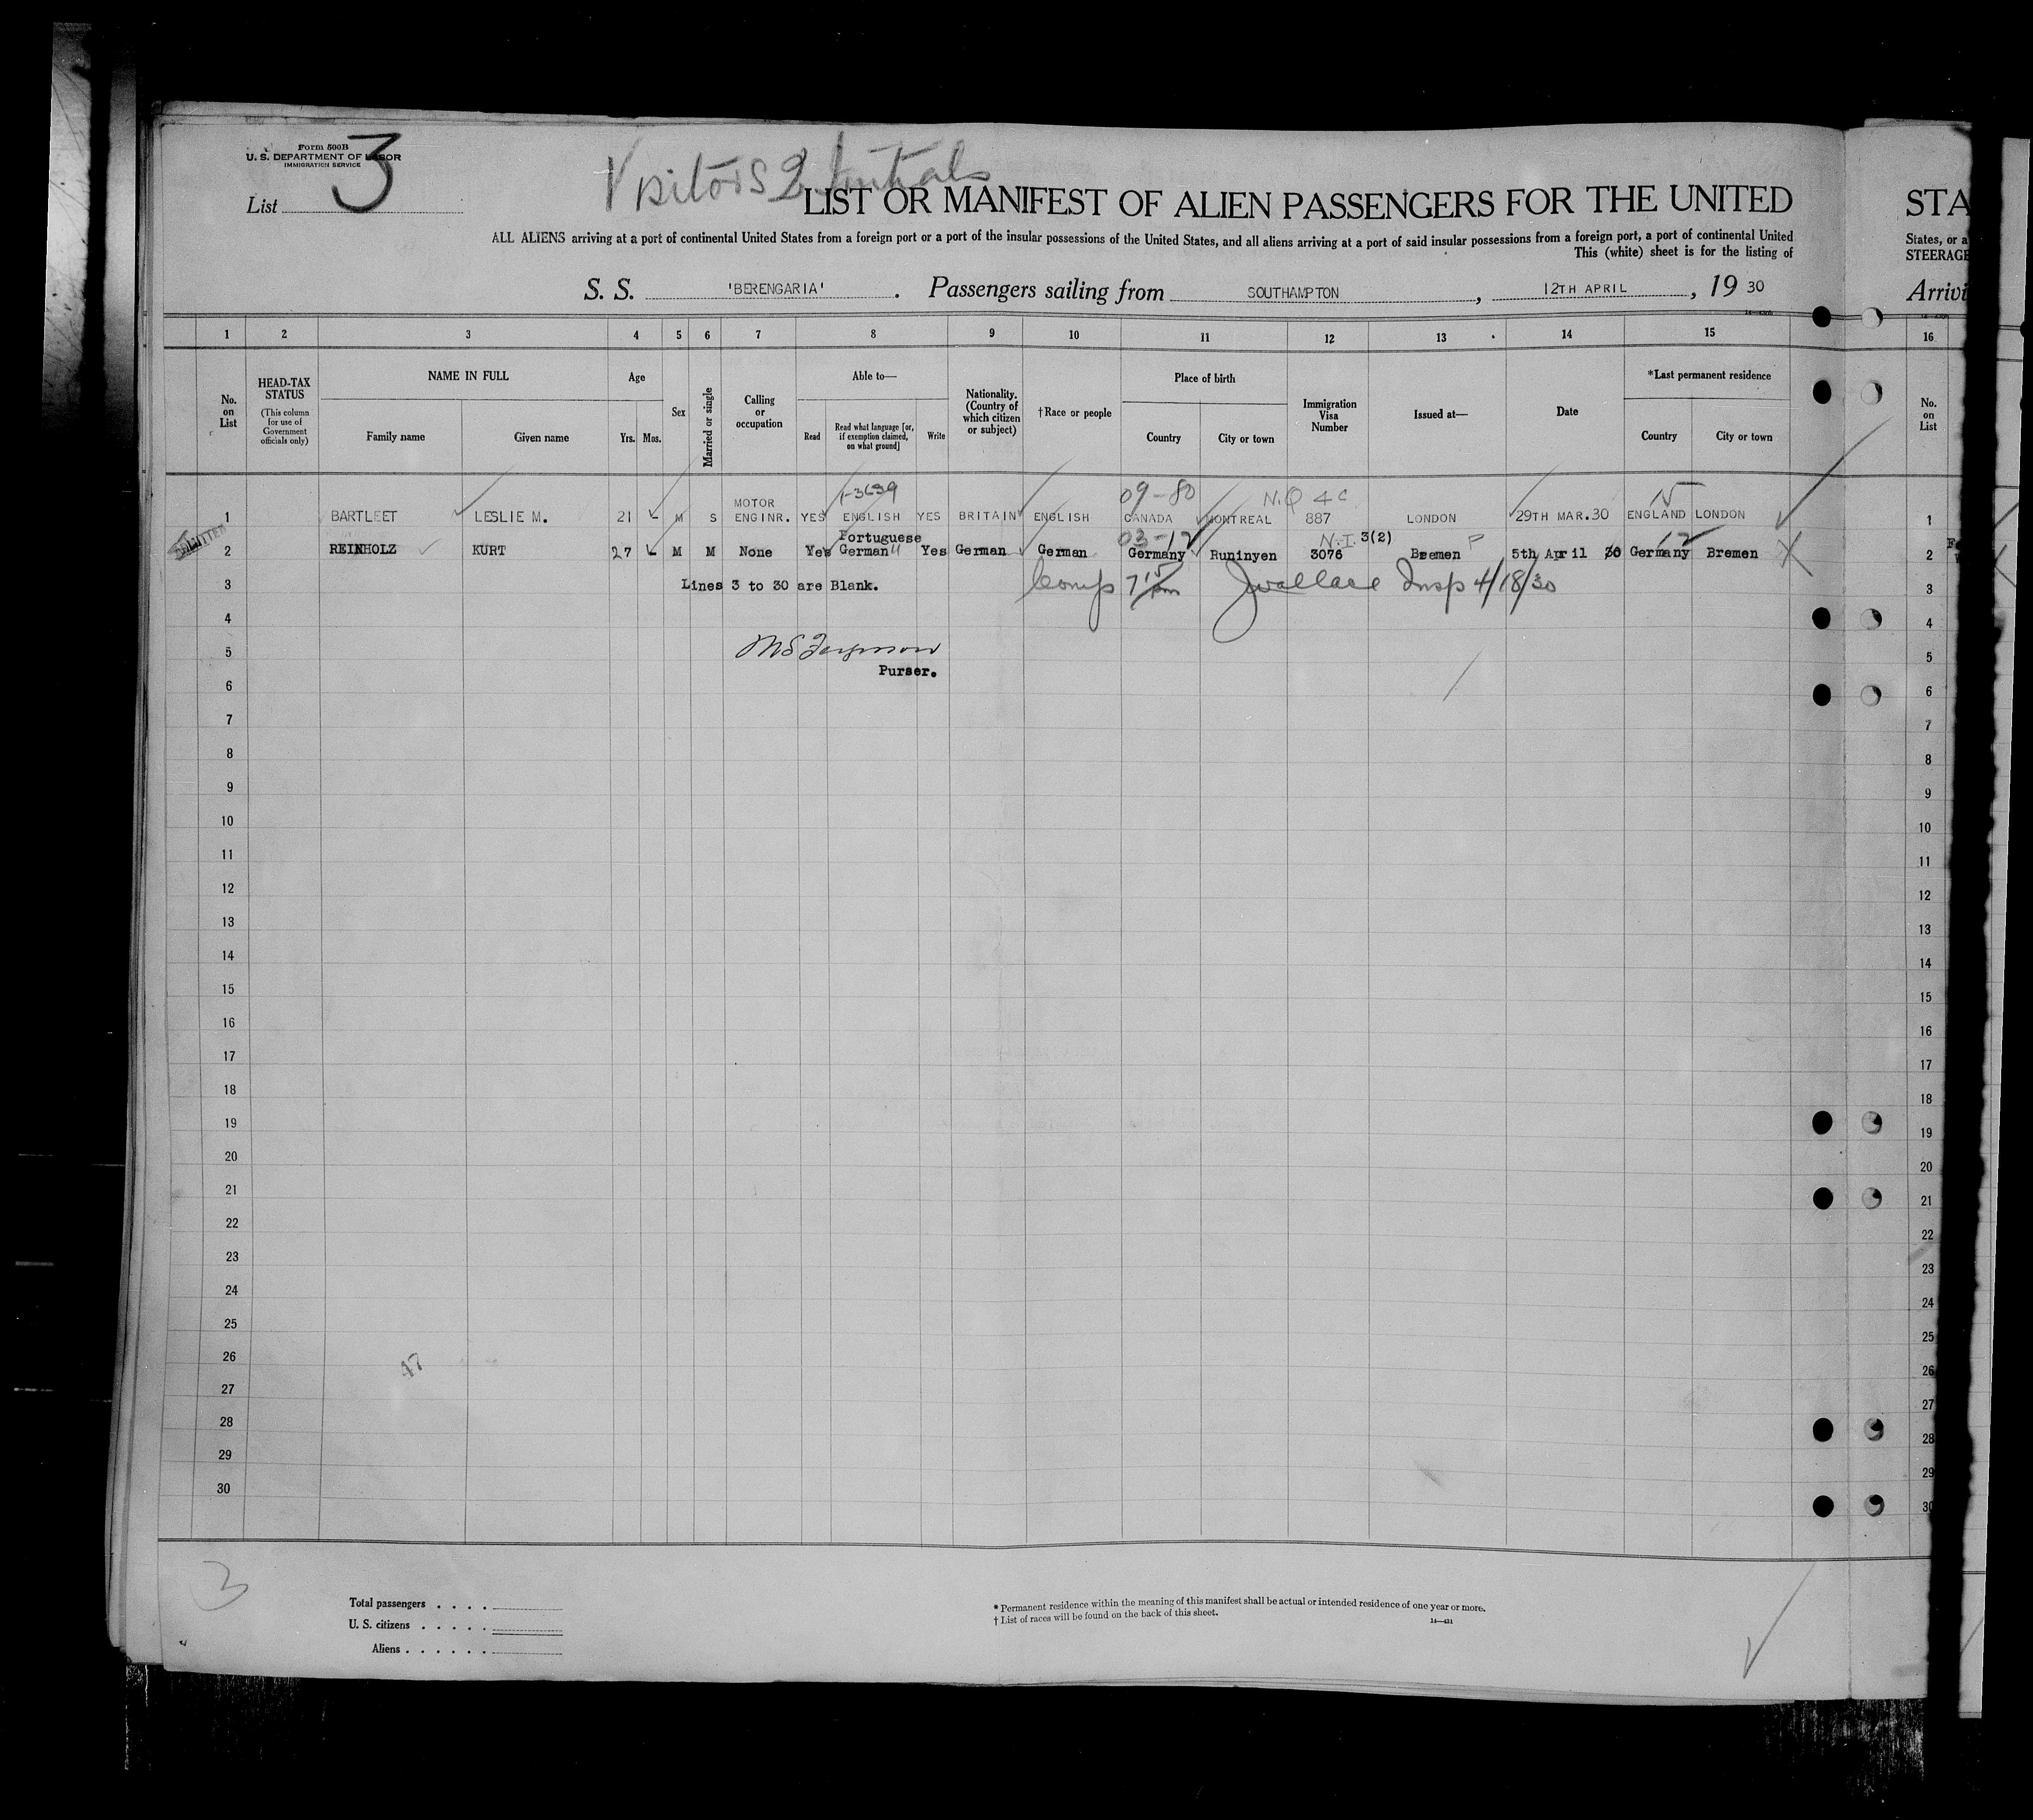 Form 500B
U. S. DEPARTMENT OF LABOR
IMMIGRATION SERVICE
List 3
Visitors 2 Initials
LIST OR MANIFEST OF ALIEN PASSENGERS FOR THE UNITED STA
ALL ALIENS arriving at a port of continental United States from a foreign port or a port of the insular possessions of the United States, and all aliens arriving at a port of said insular possessions from a foreign port, a port of continental United States, or a
This (white) sheet is for the listing of STEERAGE
S. S. 'BERENGARIA'. Passengers sailing from SOUTHAMPTON, 12TH APRIL, 19 30 Arrivi
1 2 3 4 5 6 7 8 9 10 11 12 13 14 15 16
No. on List
HEAD-TAX STATUS
(This column for use of Government officials only)
NAME IN FULL
Family name Given name
Age
Yrs. Mos.
Sex
Married or single
Calling or occupation
Able to—
Read Read what language [or, if exemption claimed, on what ground] Write
Nationality. (Country of which citizen or subject)
†Race or people
Place of birth
Country City or town
Immigration Visa Number
Issued at—
Date
*Last permanent residence
Country City or town
No. on List
1-3639 09-80 N.Q 4C
1 BARTLEET LESLIE M. 21 - M S MOTOR ENGINR. YES ENGLISH YES BRITAIN ENGLISH CANADA MONTREAL 887 LONDON 29TH MAR.30 ENGLAND LONDON 1
03-12 N.I. 3(2) P
2 REINHOLZ KURT 27 - M M None Yes Portuguese German Yes German German Germany Runinyen 3076 Bremen 5th April 30 Germany Bremen 2
3 Lines 3 to 30 are Blank. Comp 7 15 pm J Wallace Insp 4/18/30 3
4 4
5 M S Ferguson 5
Purser.
6 6
7 7
8 8
9 9
10 10
11 11
12 12
13 13
14 14
15 15
16 16
17 17
18 18
19 19
20 20
21 21
22 22
23 23
24 24
25 25
26 47 26
27 27
28 28
29 29
30 30
3
Total passengers . . . .
U. S. citizens . . . . .
Aliens . . . . . .
* Permanent residence within the meaning of this manifest shall be actual or intended residence of one year or more.
† List of races will be found on the back of this sheet.
14—431